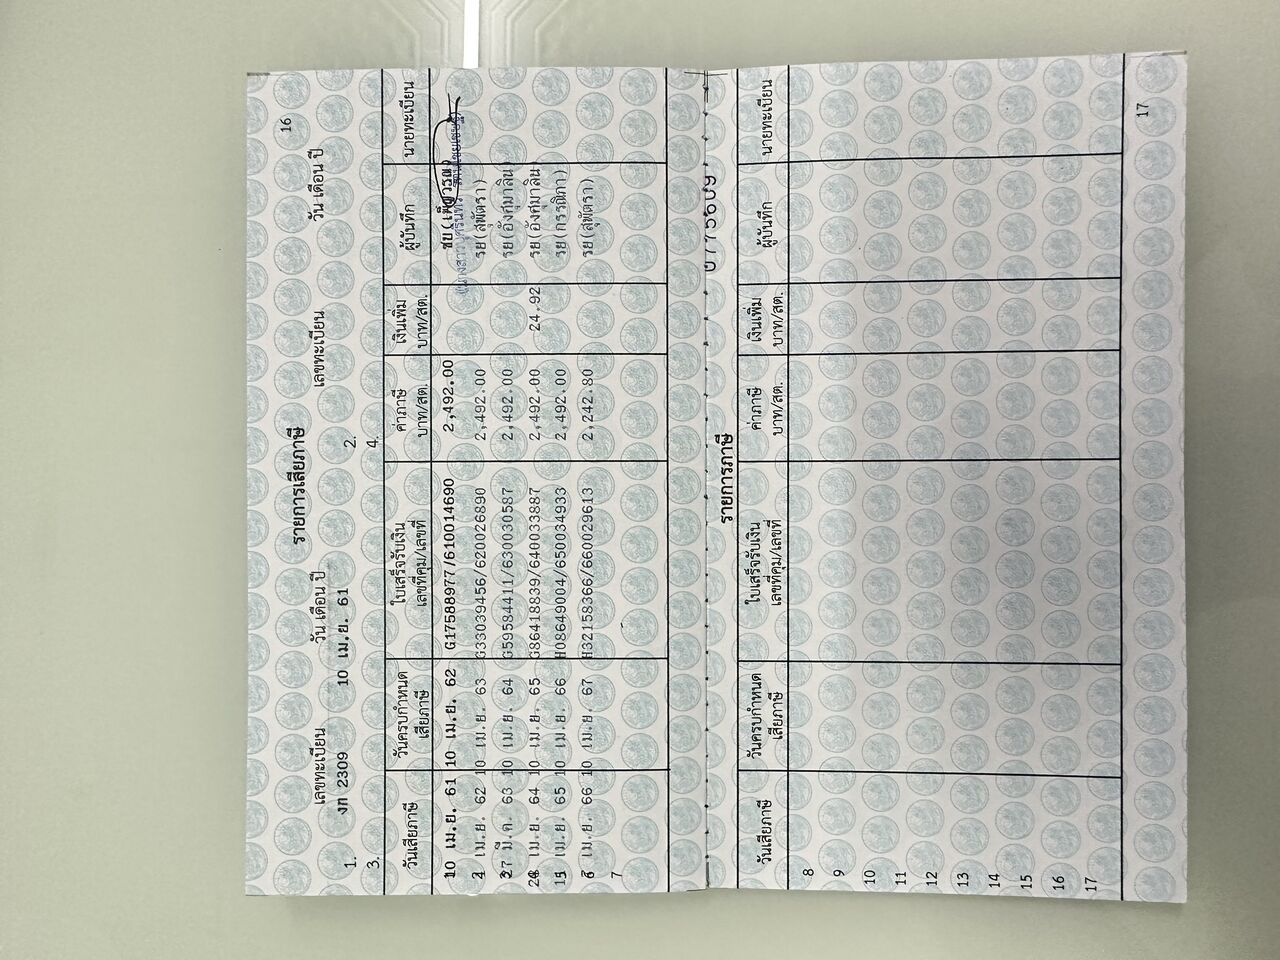 16
รายการเสียภาษี
เลขทะเบียน วัน เดือน ปี เลขทะเบียน วัน เดือน ปี
1. งก 2309 10 เม.ย. 61 2.
3. 4.
วันเสียภาษี วันครบกำหนดเสียภาษี ใบเสร็จรับเงิน เลขที่คุม/เลขที่ ค่าภาษี บาท/สต. เงินเพิ่ม บาท/สต. ผู้บันทึก นายทะเบียน
10 เม.ย. 61 10 เม.ย. 62 G17588977/610014690 2,492.00
เม.ย. 62 10 เม.ย. 63 G33039456/620026890 2,492.00 รย(สุพัตรา)
27 มี.ค. 63 10 เม.ย. 64 G59584411/630030587 2,492.00 รย(อังศุมาลิน)
เม.ย. 64 10 เม.ย. 65 G86418839/640033887 2,492.00 24.92 รย(อังศุมาลิน)
เม.ย. 65 10 เม.ย. 66 H08649004/650034933 2,492.00 รย(กรรณิภา)
เม.ย. 66 10 เม.ย. 67 H32158366/660029613 2,242.80 รย(สุพัตรา)
7
รายการภาษี
วันเสียภาษี วันครบกำหนดเสียภาษี ใบเสร็จรับเงิน เลขที่คุม/เลขที่ ค่าภาษี บาท/สต. เงินเพิ่ม บาท/สต. ผู้บันทึก นายทะเบียน
8
9
10
11
12
13
14
15
16
17
17